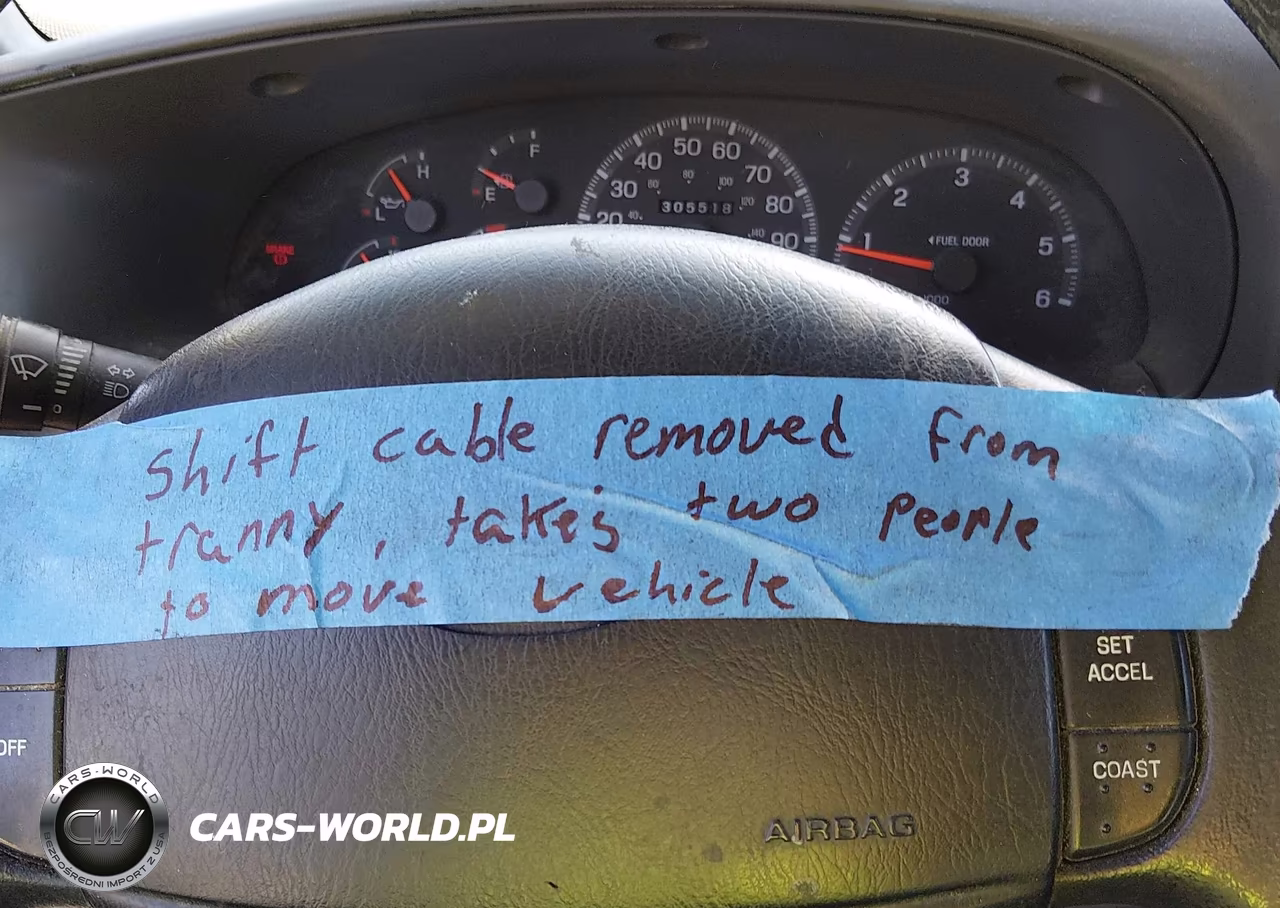 H
L
F
E
20 30 40 50 60 70 80 90
60 80 100 120 140
40
305518
1 2 3 4 5 6
FUEL DOOR
BRAKE
Shift cable removed from
tranny, takes two people
to move vehicle
SET
ACCEL
OFF
COAST
AIRBAG
CARS-WORLD
CW
BEZPOŚREDNI IMPORT Z USA
CARS-WORLD.PL